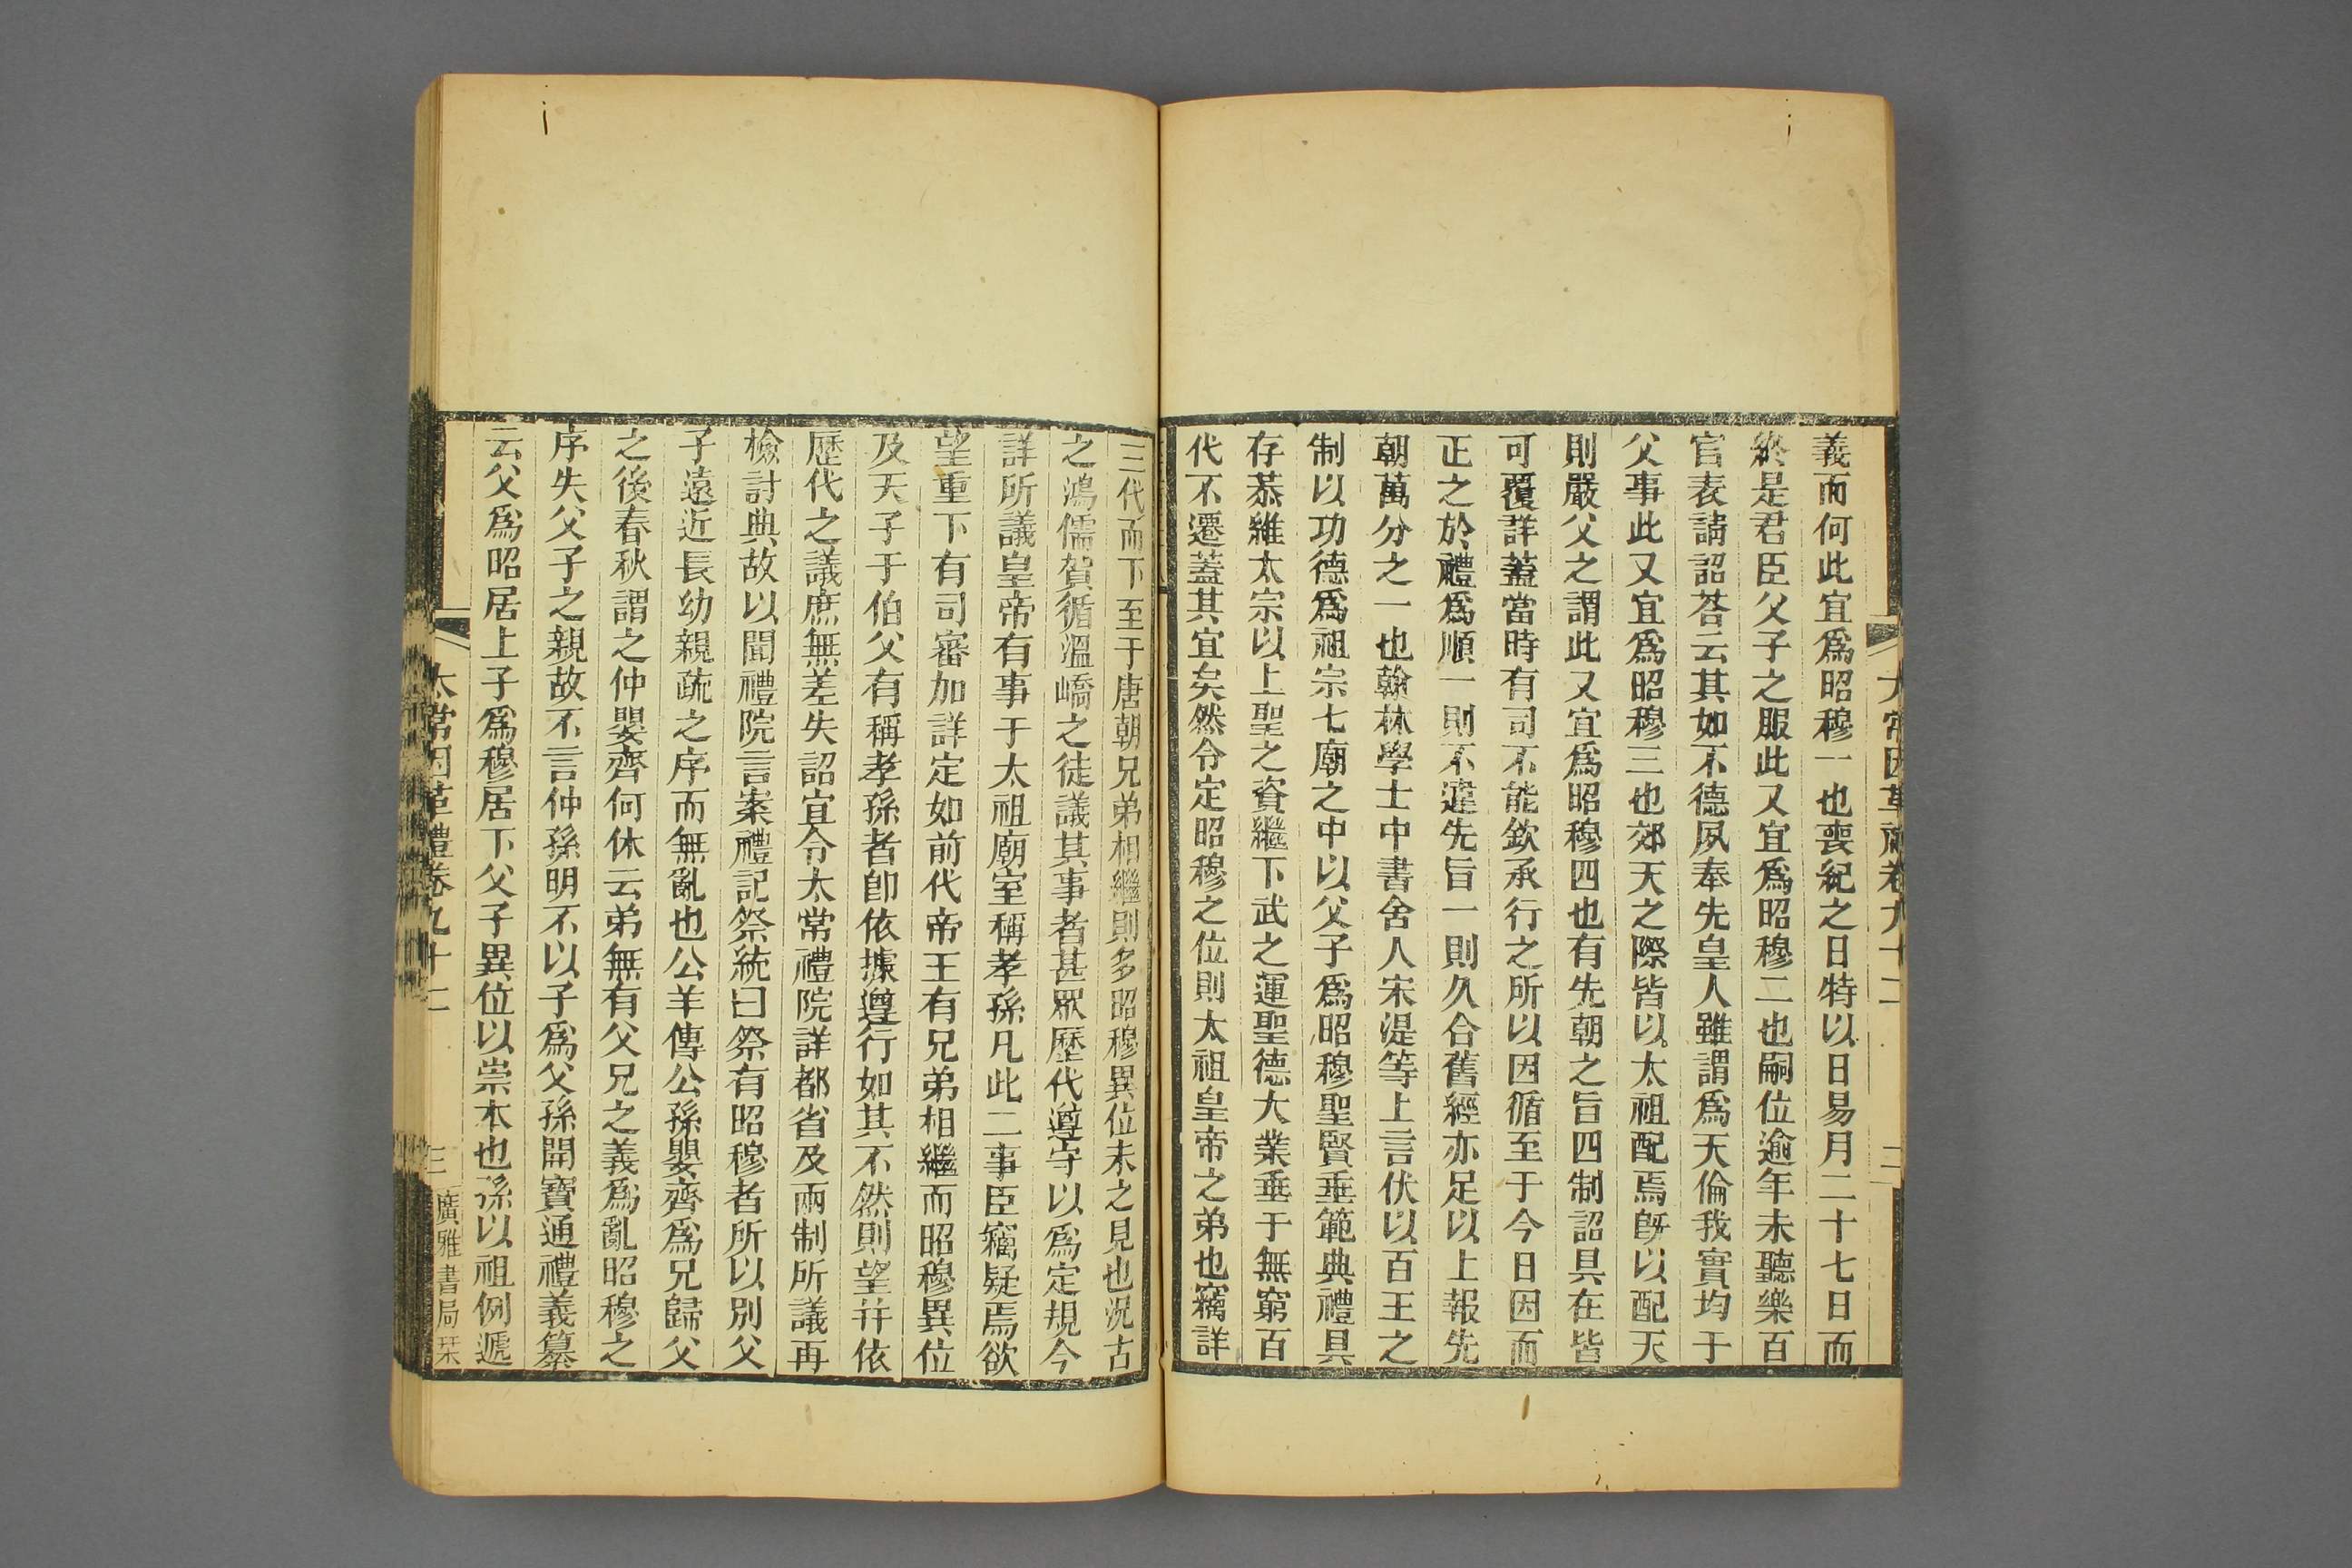 太常因革禮卷九十二
二
義而何此宜爲昭穆一也喪紀之日特以日易月二十七日而
終是君臣父子之服此又宜爲昭穆二也嗣位逾年未聽樂百
官表請詔荅云其如不德夙奉先皇人雖謂爲天倫我實均于
父事此又宜爲昭穆三也郊天之際皆以太祖配焉旣以配天
則嚴父之謂此又宜爲昭穆四也有先朝之旨四制詔具在皆
可覆詳蓋當時有司不能欽承行之所以因循至于今日因而
正之於禮爲順一則不違先旨一則久合舊經亦足以上報先
朝萬分之一也翰林學士中書舍人宋湜等上言伏以百王之
制以功德爲祖宗七廟之中以父子爲昭穆聖賢垂範典禮具
存恭維太宗以上聖之資繼下武之運聖德大業垂于無窮百
代不遷蓋其宜矣然今定昭穆之位則太祖皇帝之弟也竊詳
三代而下至于唐朝兄弟相繼則多昭穆異位未之見也況古
之鴻儒賀循溫嶠之徒議其事者甚眾歷代遵守以爲定規今
詳所議皇帝有事于太祖廟室稱孝孫凡此二事臣竊疑焉欲
望重下有司審加詳定如前代帝王有兄弟相繼而昭穆異位
及天子于伯父有稱孝孫者卽依據遵行如其不然則望幷依
歷代之議庶無差失詔宜令太常禮院詳都省及兩制所議再
檢討典故以聞禮院言案禮記祭統曰祭有昭穆者所以別父
子遠近長幼親疏之序而無亂也公羊傳公孫嬰齊爲兄歸父
之後春秋謂之仲嬰齊何休云弟無有父兄之義爲亂昭穆之
序失父子之親故不言仲孫明不以子爲父孫開寶通禮義纂
云父爲昭居上子爲穆居下父子異位以崇本也孫以祖例遞
太常因革禮卷九十二
三
廣雅書局栞